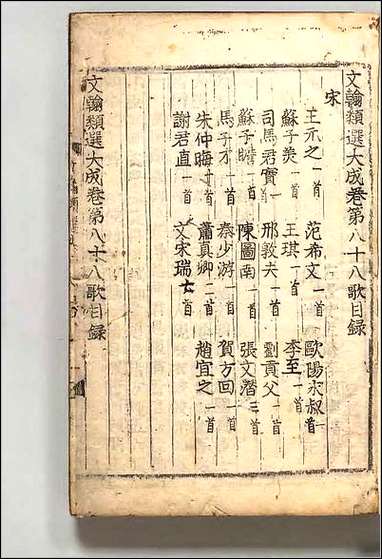 文翰類選大成卷第八十八歌目録
宋
王元之一首 范希文一首 歐陽永叔一首
蘇子美一首 王琪一首 李至一首
司馬君實一首 邢敦夫一首 劉貢父一首
蘇子瞻首 陳圖南一首 張文潛三首
馬子才一首 秦少游一首 賀方回一首
朱仲晦一首 蕭真卿二首 趙宜之一首
謝君直一首 文宋瑞六首
文翰類選大成卷第八十八歌目録